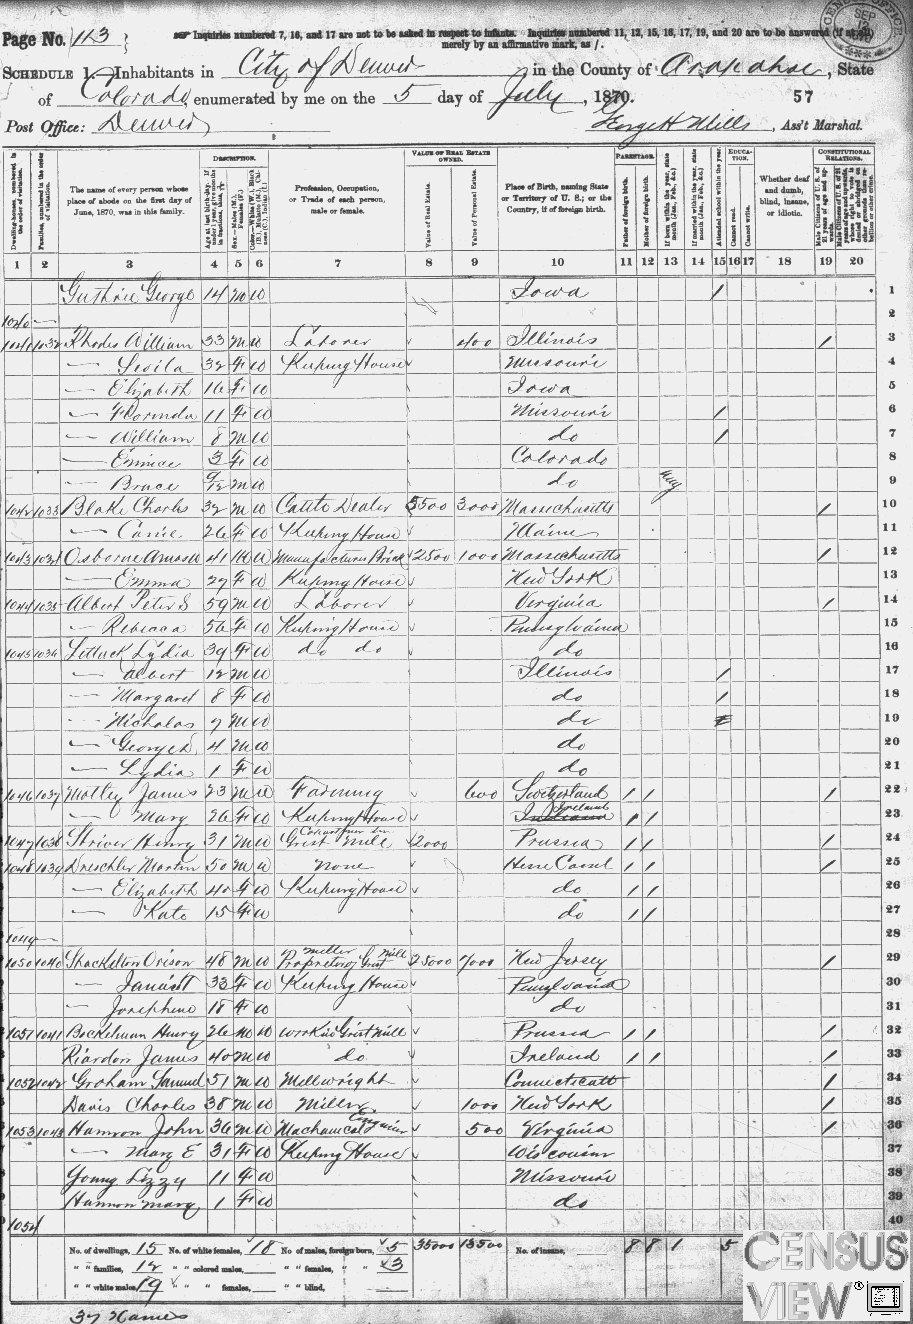 Page No. 113
Inquiries numbered 7, 16, and 17 are not to be asked in respect to infants. Inquiries numbered 11, 12, 15, 16, 17, 19, and 20 are to be answered (if at all)
merely by an affirmative mark, as /.
SCHEDULE 1.—Inhabitants in City of Denver, in the County of Arapahoe, State
of Colorado, enumerated by me on the 5 day of July, 1870. 57
Post Office: Denver George H Mills, Ass't Marshal.
DESCRIPTION. VALUE OF REAL ESTATE OWNED. PARENTAGE. EDUCATION. CONSTITUTIONAL RELATIONS.
Dwelling-houses, numbered in the order of visitation.
Families, numbered in the order of visitation.
The name of every person whose place of abode on the first day of June, 1870, was in this family.
Profession, Occupation, or Trade of each person, male or female.
Value of Real Estate.
Value of Personal Estate.
Place of Birth, naming State or Territory of U. S.; or the Country, if of foreign birth.
Father of foreign birth.
Mother of foreign birth.
If born within the year, state month (Jan., Feb., &c.)
If married within the year, state month (Jan., Feb., &c.)
Attended school within the year.
Cannot read.
Cannot write.
Whether deaf and dumb, blind, insane, or idiotic.
1 2 3 4 5 6 7 8 9 10 11 12 13 14 15 16 17 18 19 20
Guthrie George 14 M W Iowa / 1
1040 — 2
1041 1032 Rhodes William 33 M W Laborer 400 Illinois / 3
— 32 F W Keeping House Missouri 4
— Elizabeth 16 F W Iowa 5
— 11 F W Missouri / 6
— William 8 M W do / 7
— 3 F W Colorado 8
— Bruce 9/12 M W do Aug 9
1042 1033 Blake Charles 32 M W Cattle Dealer 3500 3000 Massachusetts / 10
— Carrie 26 F W Keeping House Maine 11
1043 1034 Osborne Amasa 41 M W Manufactures Brick 2500 1000 Massachusetts / 12
— Emma 27 F W Keeping House New York 13
1044 1035 Albert Peter S 59 M W Laborer Virginia / 14
— Rebecca 56 F W Keeping House Pennsylvania 15
1045 1036 Lydia 39 F W do do do 16
— Albert 12 M W Illinois / 17
— Margaret 8 F W do / 18
— Nicholas 7 M W do 19
— George 4 M W do 20
— Lydia 1 F W do 21
1046 1037 James 23 M W Farming 600 Switzerland / / / 22
— Mary 26 F W Keeping House Indiana Ireland / / 23
1047 1038 Striver Henry 31 M W Grist Mill 2000 Prussia / / / 24
1048 1039 Dreschler Martin 50 M W None Hesse Cassel / / / 25
— Elizabeth 40 F W Keeping House do / / 26
— Kate 15 F W do / / 27
1049 — 28
1050 1040 Shackelton Orison 48 M W Miller Proprietor Grist Mill 25000 7000 New Jersey / 29
— 33 F W Keeping House Pennsylvania 30
— Josephine 18 F W do 31
1051 1041 Bockelman Henry 26 M W Work in Grist Mill Prussia / / / 32
Riardon James 40 M W do Ireland / / / 33
1052 1042 Graham Samuel 51 M W Millwright Connecticutt / 34
Davis Charles 38 M W Miller 1000 New York / 35
1053 1043 Hannon John 36 M W Machanical Enginier 500 Virginia / 36
— Mary E 31 F W Keeping House Wisconsin 37
Young Lizzy 11 F W Missouri 38
Hannon Mary 1 F W do 39
1054 40
No. of dwellings, 15 No. of white females, 18 No. of males, foreign born, 5 35000 13500 No. of insane, 8 8 1 5
" " families, 12 " " colored males, " " females, " " 3
" " white males, 19 " " females, " " blind,
37 Names
CENSUS
VIEW